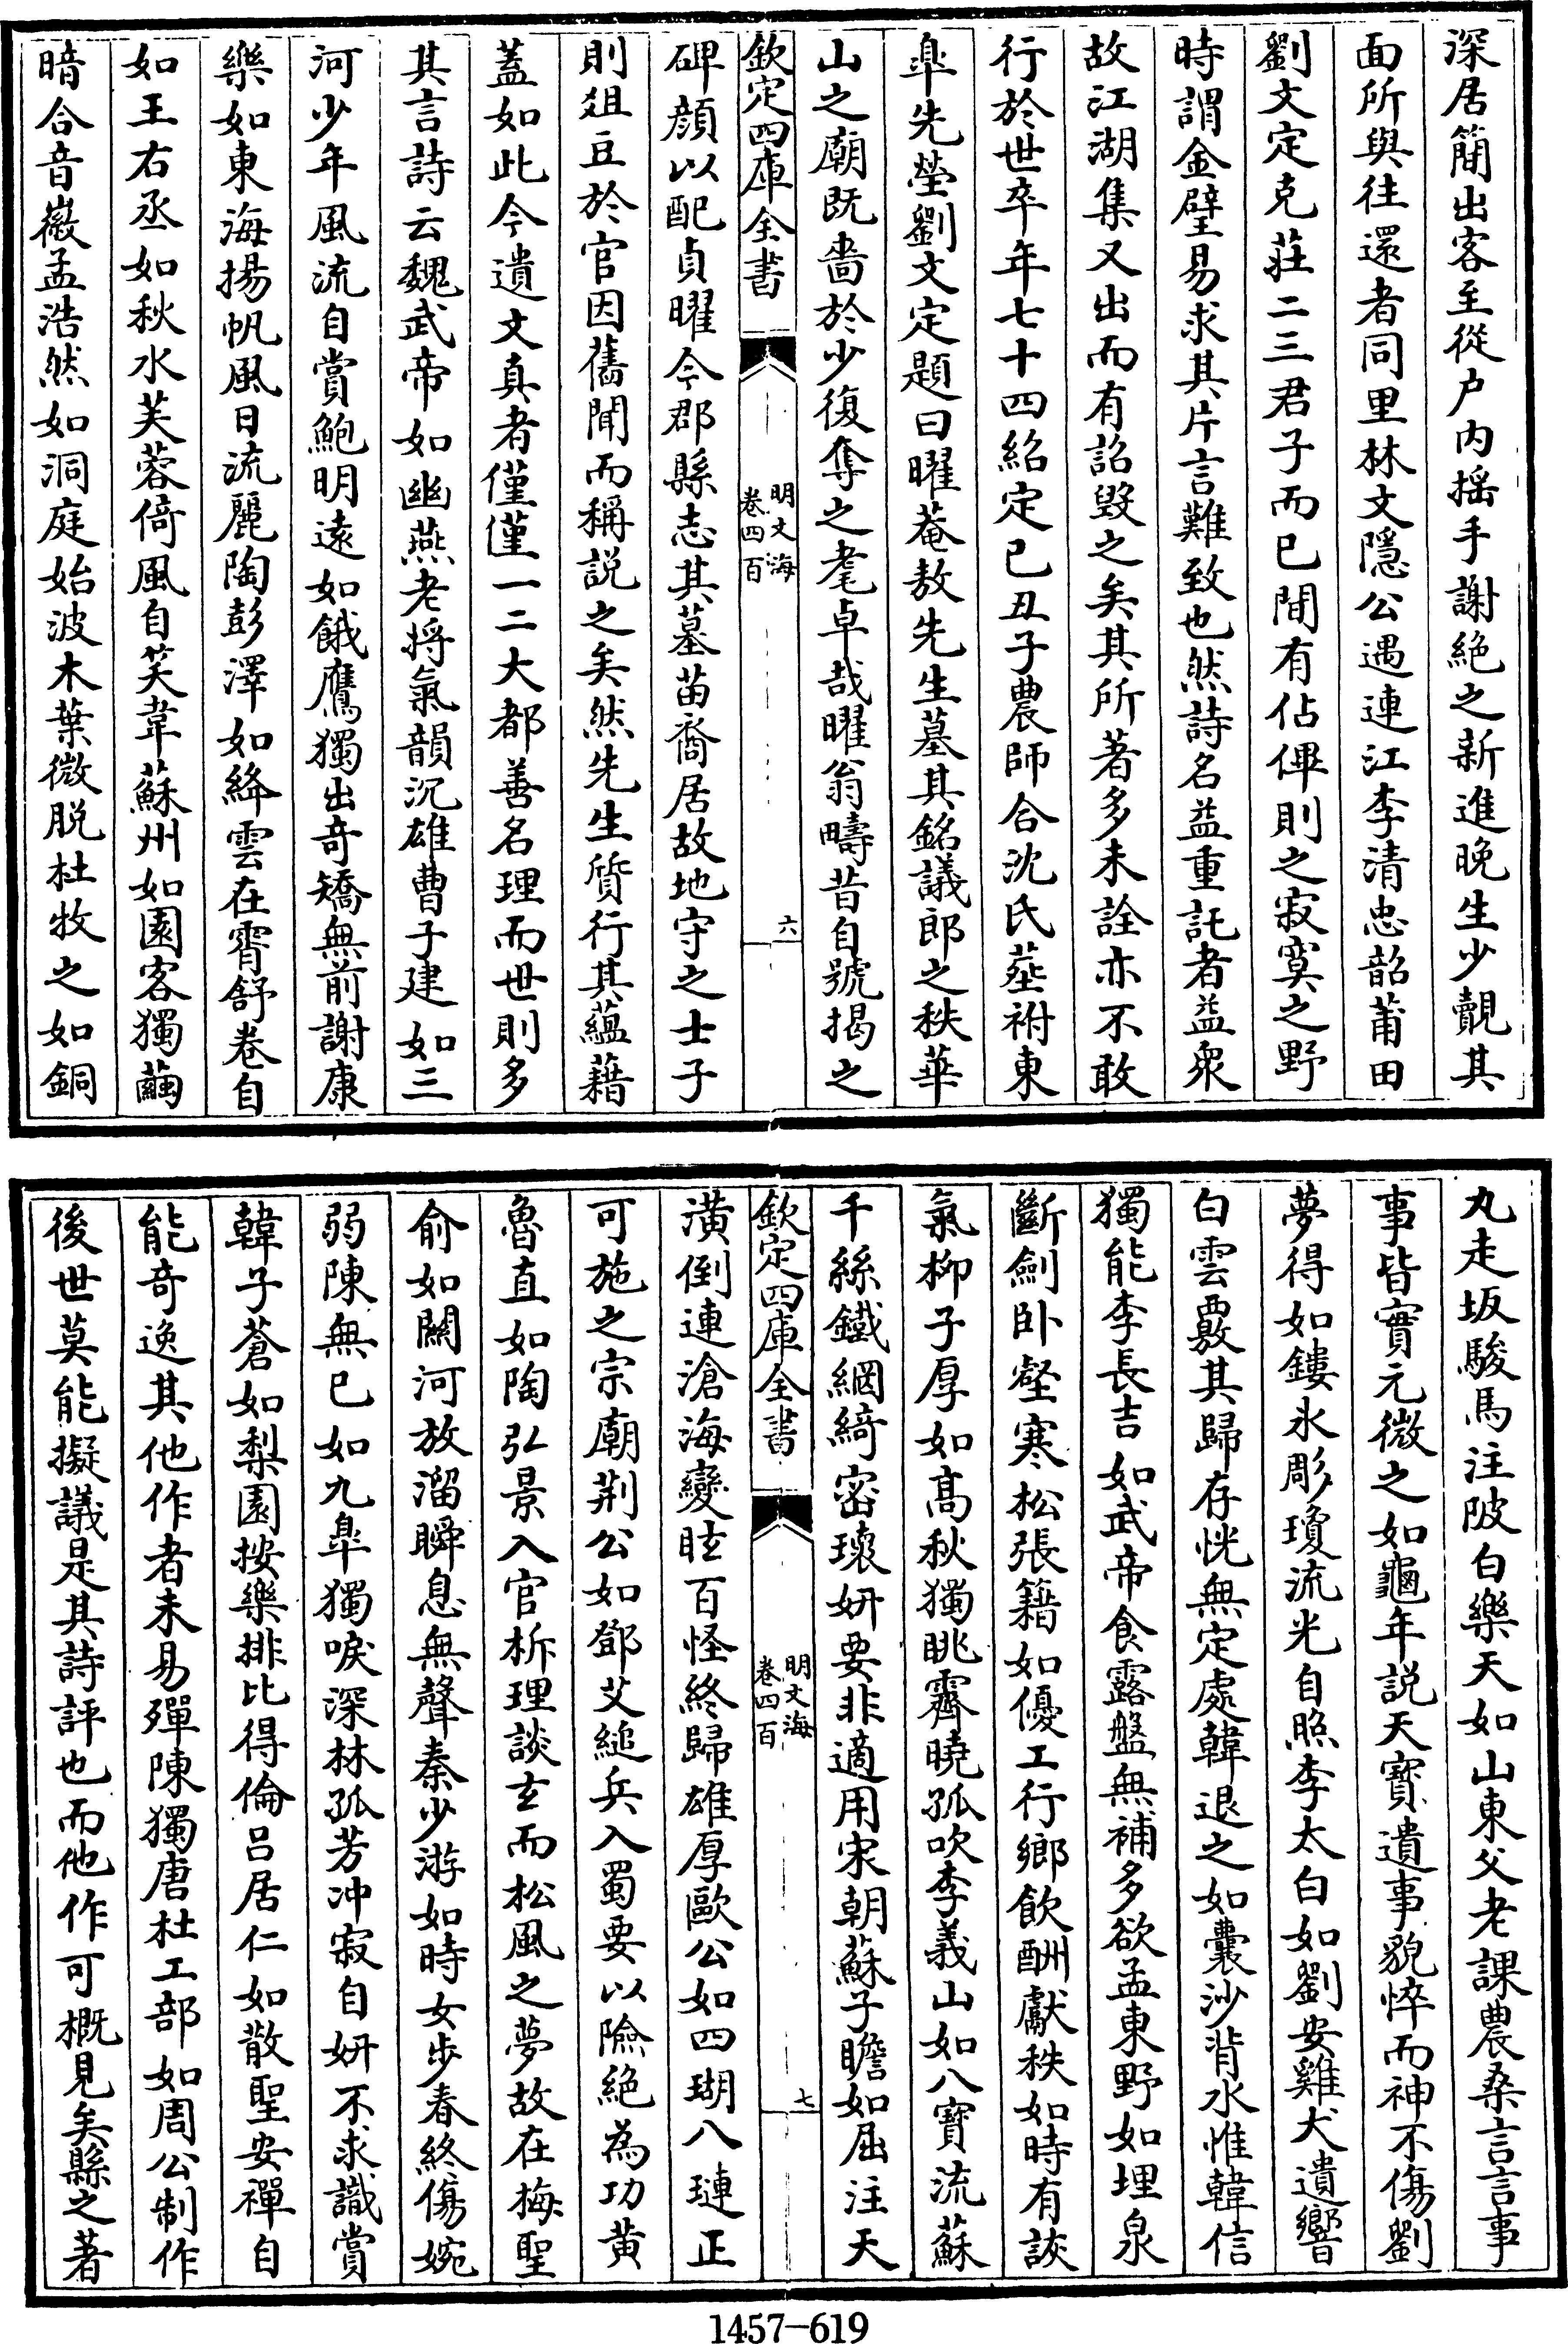 深居簡出客至從户内揺手謝絶之新進晩生少覿其
面所與往還者同里林文隱公遇連江李清忠韶莆田
劉文定克莊二三君子而已間有佔俾則之寂寞之野
時謂金璧易求其片言難致也然詩名益重託者益衆
故江湖集又出而有詔毁之矣其所著多未詮亦不敢
行於世卒年七十四紹定已丑子農師合沈氏塟祔東
臯先塋劉文定題曰曜菴敖先生墓其銘議郎之秩華
山之廟既嗇於少復奪之耄卓哉曜翁疇昔自號揭之
欽定四庫全書
明文海
卷四百
六
碑顔以配貞曜今郡縣志其墓苗裔居故地守之士子
則俎豆於官因舊聞而稱説之矣然先生質行其藴藉
蓋如此今遺文真者僅僅一二大都善名理而世則多
其言詩云魏武帝如幽燕老將氣韻沉雄曹子建如三
河少年風流自賞鮑明遠如餓鷹獨出奇矯無前謝康
樂如東海揚帆風日流麗陶彭澤如絳雲在霄舒卷自
如王右丞如秋水芙蓉倚風自笑韋蘇州如園客獨繭
暗合音徽孟浩然如洞庭始波木葉微脱杜牧之如銅
丸走坂駿馬注陂白樂天如山東父老課農桑言言事
事皆實元微之如龜年説天寶遺事貌悴而神不傷劉
夢得如鏤氷彫瓊流光自照李太白如劉安雞犬遺響
白雲覈其歸存恍無定處韓退之如囊沙背水惟韓信
獨能李長吉如武帝食露盤無補多欲孟東野如埋泉
斷劍卧壑寒松張籍如優工行鄉飲酬獻秩如時有詼
氣柳子厚如髙秋獨眺霽曉孤吹李義山如八寶流蘇
千絲鐵網綺密瓌妍要非適用宋朝蘇子瞻如屈注天
欽定四庫全書
明文海
卷四百
七
潢倒連滄海變眩百怪終歸雄厚歐公如四瑚八璉正
可施之宗廟荆公如鄧艾縋兵入蜀要以險絶為功黄
魯直如陶弘景入官析理談玄而松風之夢故在梅聖
俞如關河放溜瞬息無聲秦少游如時女步春終傷婉
弱陳無已如九臯獨唳深林孤芳冲寂自妍不求識賞
韓子蒼如梨園按樂排比得倫吕居仁如散聖安禪自
能奇逸其他作者未易殫陳獨唐杜工部如周公制作
後世莫能擬議是其詩評也而他作可概見矣縣之著
1457-619